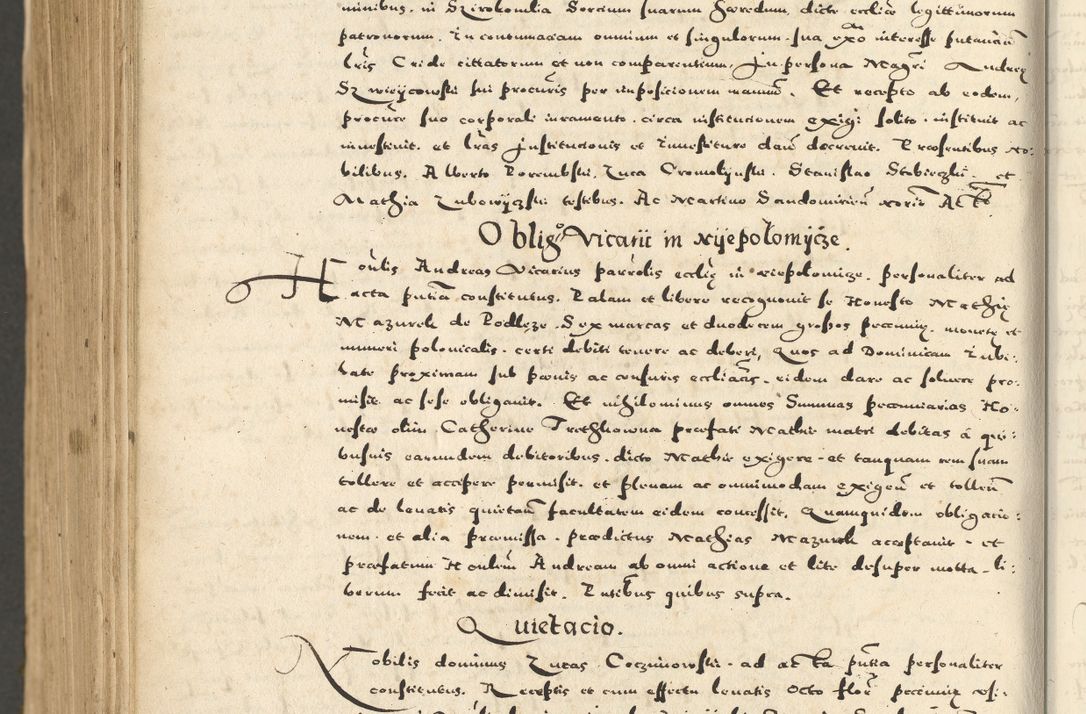 minibus. in Szirokomlia Sorcium suarum haeredum, dictae ecclie legittimorum
patronorum. In contumaciam omnium et singulorum sua exõ interesse putanciũ
lris Cridae cittatorum et non comparentium, In persona Magri Andreę
Szwieijcowski sui procuris per imposicionem manuũ. Et recepto ab eodem,
procure suo corporali iuramento. circa institucionem exigi solito. instituit ac
inuestiuit. et lras Institucionis et Inuestiture dari decreuit. Praesentibus No:
bilibus. Alberto Porembski, Luca Cromolijnski. Stanislao Stobieczki. et
Mathia Lubowijczski testibus. Ac Martino Sandomirien̄ norio
Oblig° Vicarii in Nijepołomijcze.
Honlis Andreas Vicarius parrolis ecclę in Niepolomicze. personaliter ad
acta pntia constitutus. Palam et libere recognouit se Honesto Mathię
Mazurek de Podlęze. Sex marcas et duodecem grossos pecunię. monetę et
numeri polonicalis. certi debiti tenere ac deberi, Quos ad Dominicam Iubi:
late proximam sub poenis ac censuris eccliacis. eidem dare ac soluere pro:
misit ac sese obligauit. Et nihilominus omnes Summas pecuniarias Ho:
nestae olim Catherinae Trethkowna praefati Mathie matri debitas á qui:
busuis earundem debitoribus. dicto Mathie exigere. et tanquam rem suam
tollere et accipere permisit. et plenam ac omnimodam exigen̄ et tollen̄
ac de leuatis quietan̄ facultatem eidem concessit. Quamquidem obligacio:
nem. et alia praemissa. praedictus Mathias Mazurek acceptauit. et
praefatum Honlem Andream ab omni actione et lite desuper motta. li:
berum fecit ac dimisit. Pntibus quibus supra.
Quietacio.
Nobilis dominus Lucas Coczmorowski. ad acta pntia personaliter
constitutus. Receptis et cum effectu leuatis Octo flor pecunię